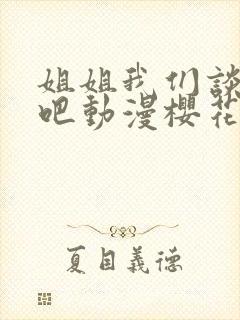 姐姐我们談
吧動漫櫻花
夏目義德